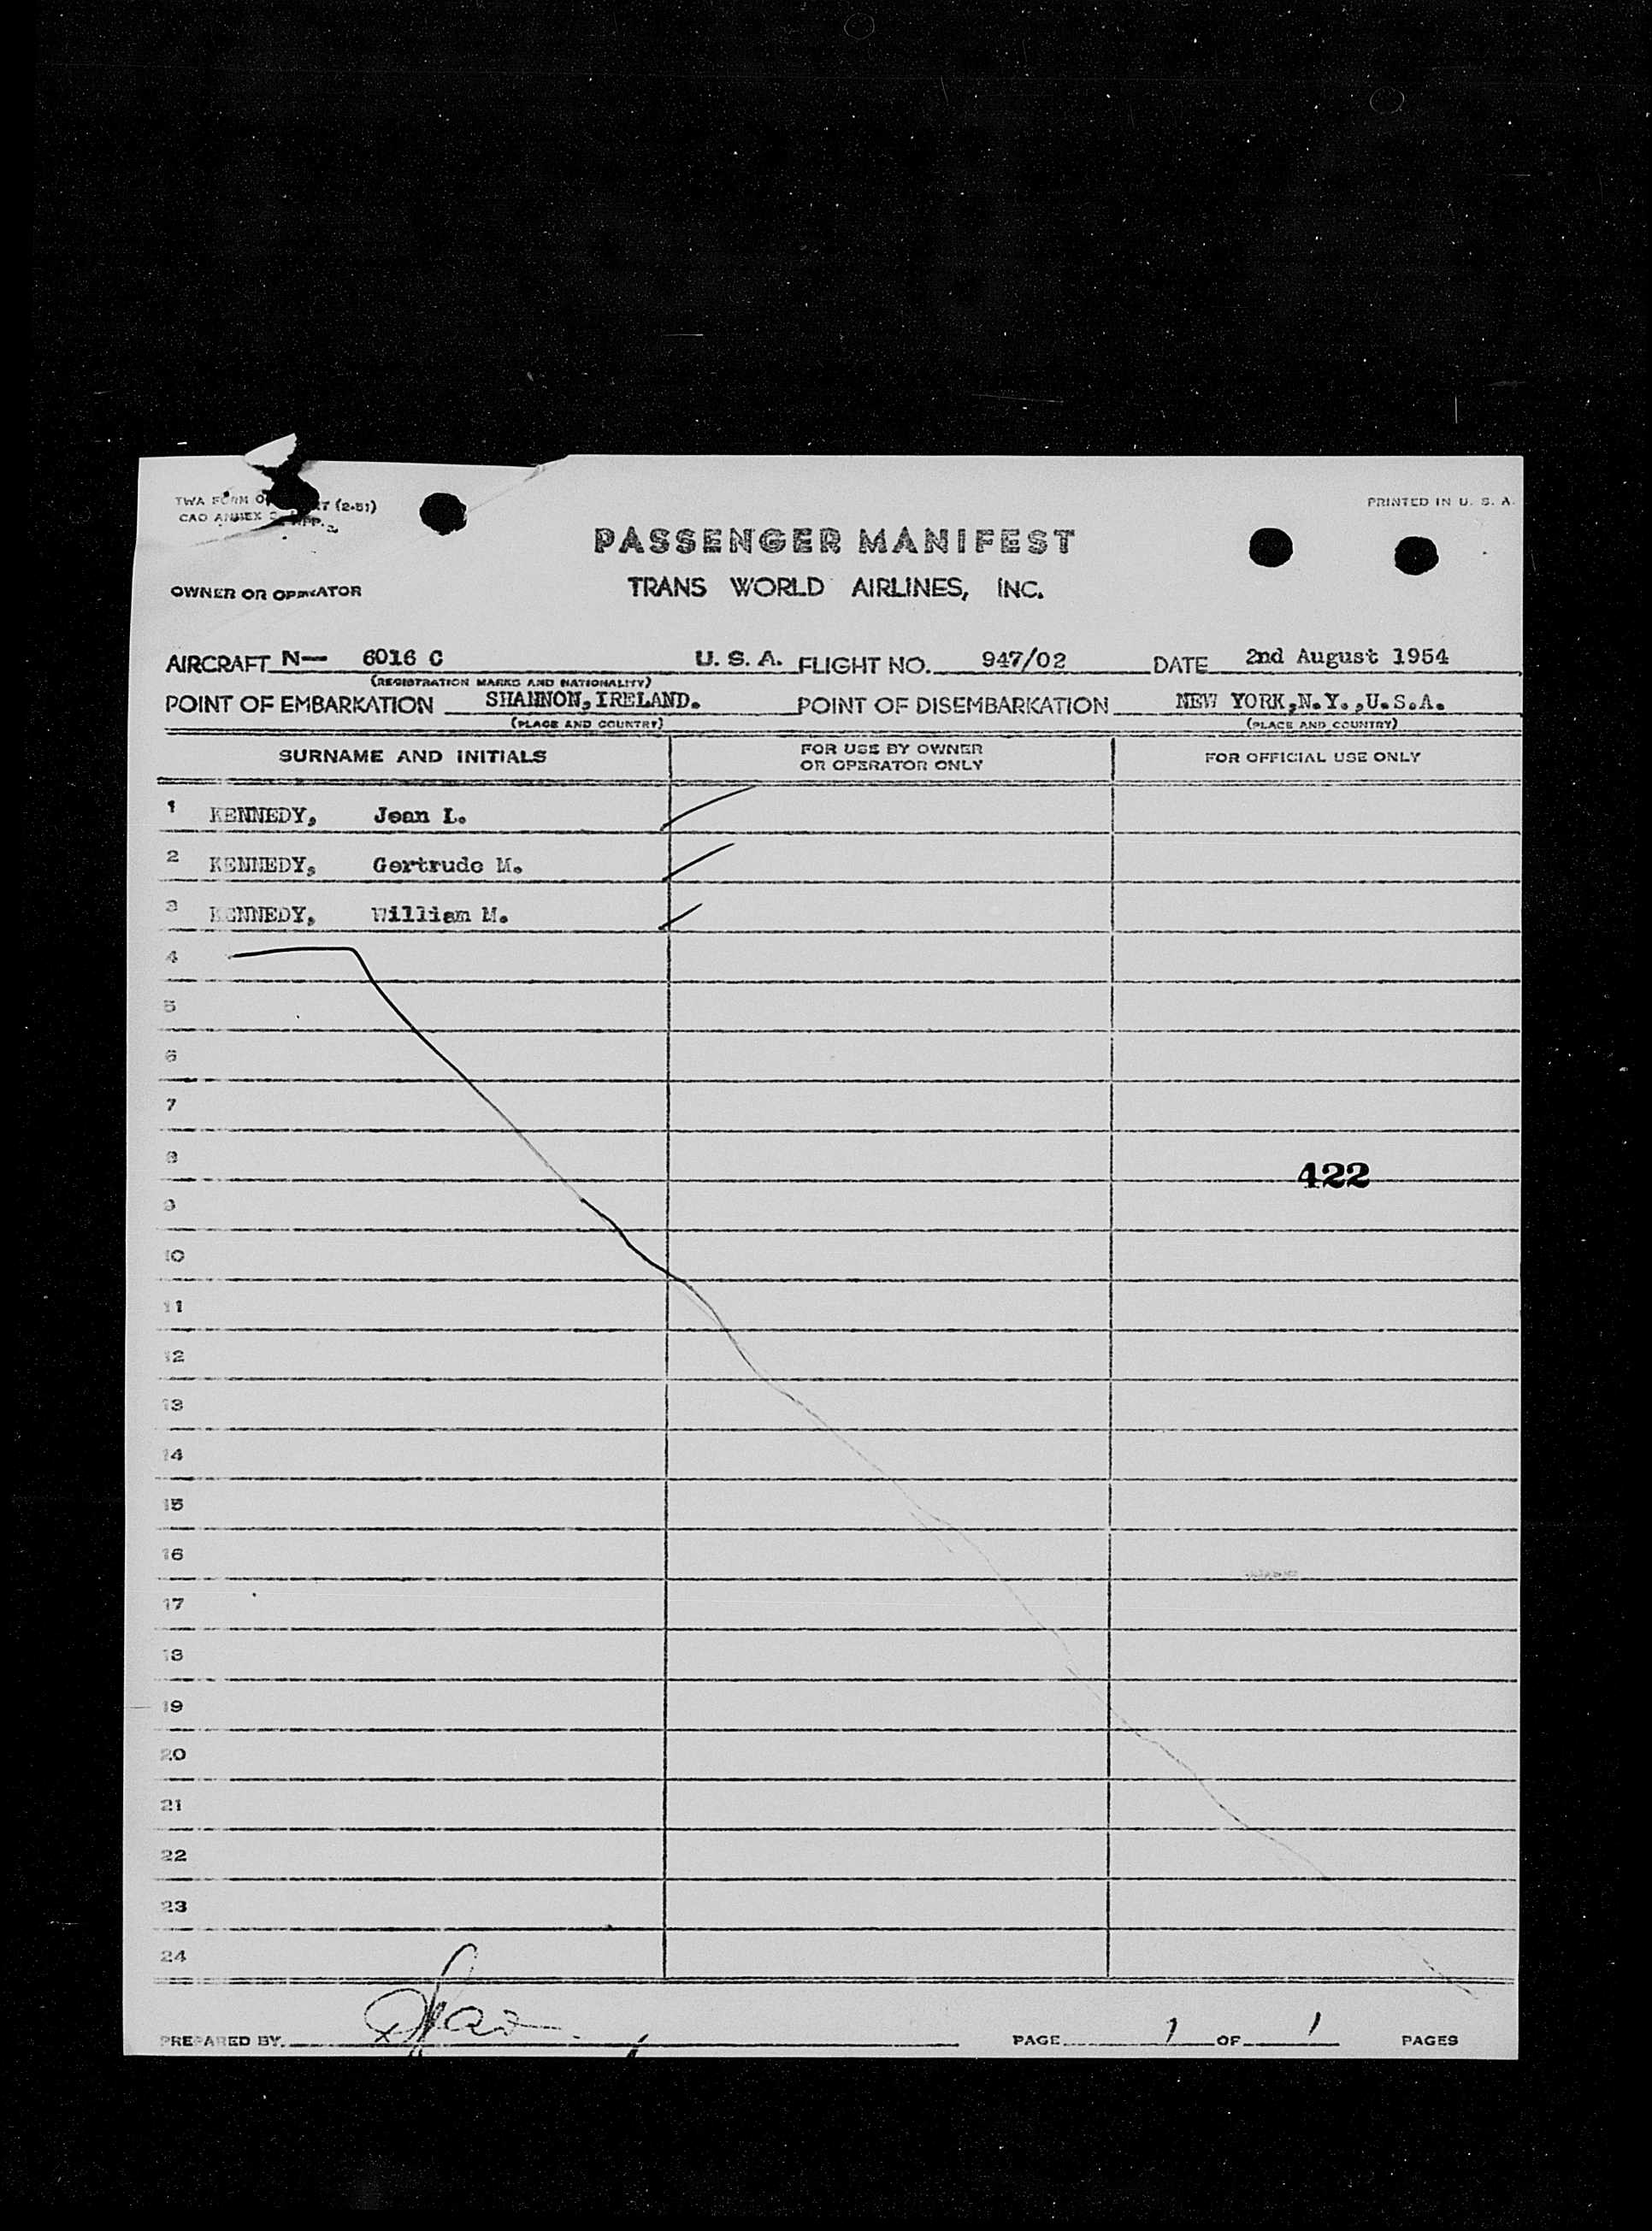 TWA FORM (2-51)
PRINTED IN U. S. A.
CAO ANNEX
PASSENGER MANIFEST
OWNER OR OPERATOR
TRANS WORLD AIRLINES, INC.
AIRCRAFT N— 6016 C U. S. A. FLIGHT NO. 947/02 DATE 2nd August 1954
(REGISTRATION MARKS AND NATIONALITY)
POINT OF EMBARKATION SHANNON, IRELAND. POINT OF DISEMBARKATION NEW YORK,N.Y.,U.S.A.
(PLACE AND COUNTRY) (PLACE AND COUNTRY)
SURNAME AND INITIALS FOR USE BY OWNER OR OPERATOR ONLY FOR OFFICIAL USE ONLY
1 KENNEDY, Jean L.
2 KENNEDY, Gertrude M.
3 KENNEDY, William M.
4
5
6
7
8
422
9
10
11
12
13
14
15
16
17
18
19
20
21
22
23
24
PREPARED BY PAGE 1 OF 1 PAGES